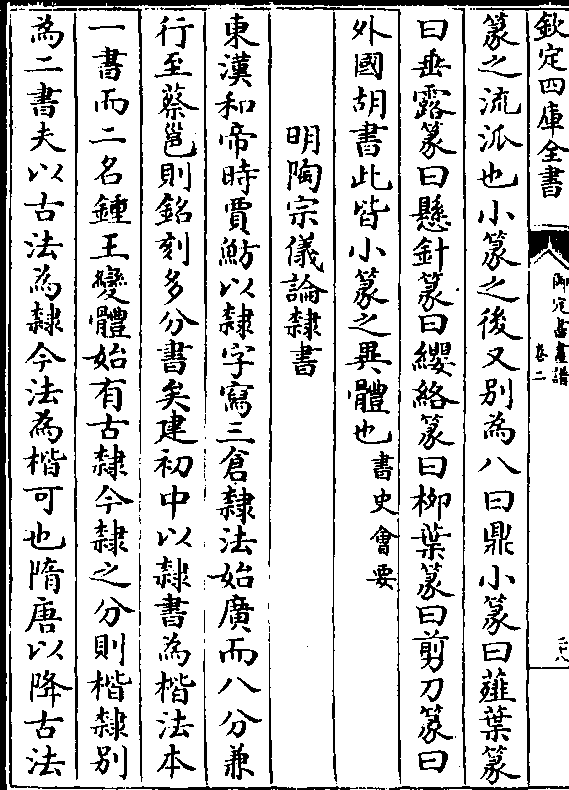 欽定四庫全書
御定書畫譜
卷二
篆之流派也小篆之後又别為八曰鼎小篆曰薤葉篆
曰垂露篆曰懸針篆曰纓絡篆曰柳葉篆曰剪刀篆曰
外國胡書此皆小篆之異體也書史會要
明陶宗儀論隸書
東漢和帝時賈魴以隸字寫三倉隸法始廣而八分兼
行至蔡邕則銘刻多分書矣建初中以隸書為楷法本
一書而二名鍾王變體始有古隸今隸之分則楷隸别
為二書夫以古法為隸今法為楷可也隋唐以降古法